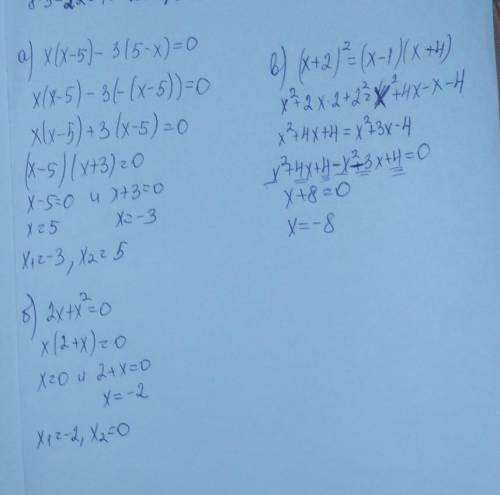 а) x(x-5)-3(5-x)=0
x(x-5)-3(-(x-5))=0
x(x-5)+3(x-5)=0
(x-5)(x+3)=0
x-5=0 и x+3=0
x=5 x=-3
x₁=-3, x₂=5
б) 2x+x²=0
x(2+x)=0
x=0 и 2+x=0
x=-2
x₁=-2, x₂=0
в) (x+2)²=(x-1)(x+4)
x²+2x·2+2²=x²+4x-x-4
x²+4x+4=x²+3x-4
x²+4x+4-x²-3x+4=0
x+8=0
x=-8